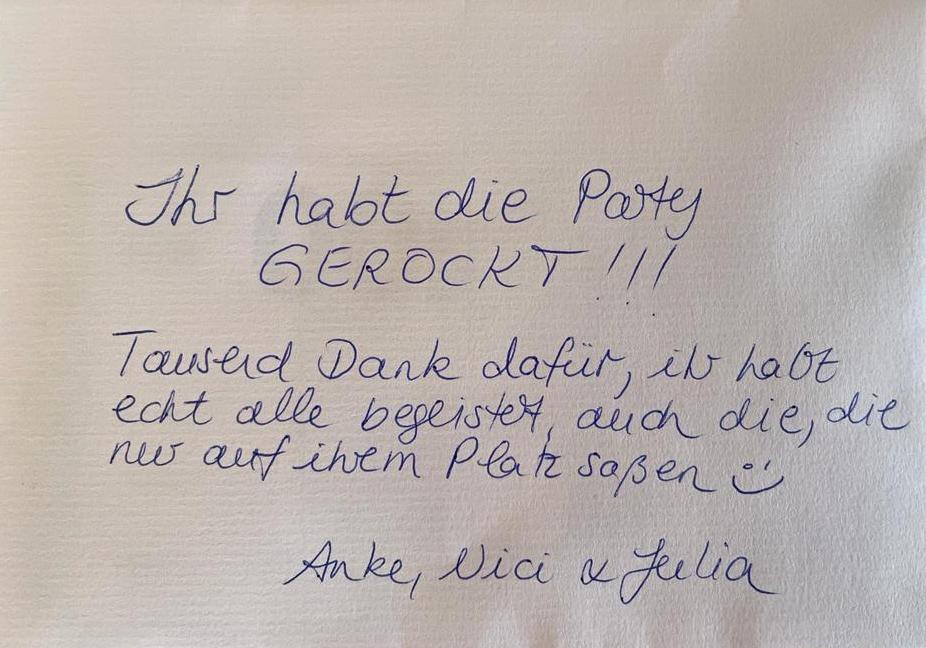 Ihr habt die Party
GEROCKT !!!
Tausend Dank dafür, ihr habt
echt alle begeistert, auch die, die
nur auf ihrem Platz saßen :)
Anke, Nici & Julia